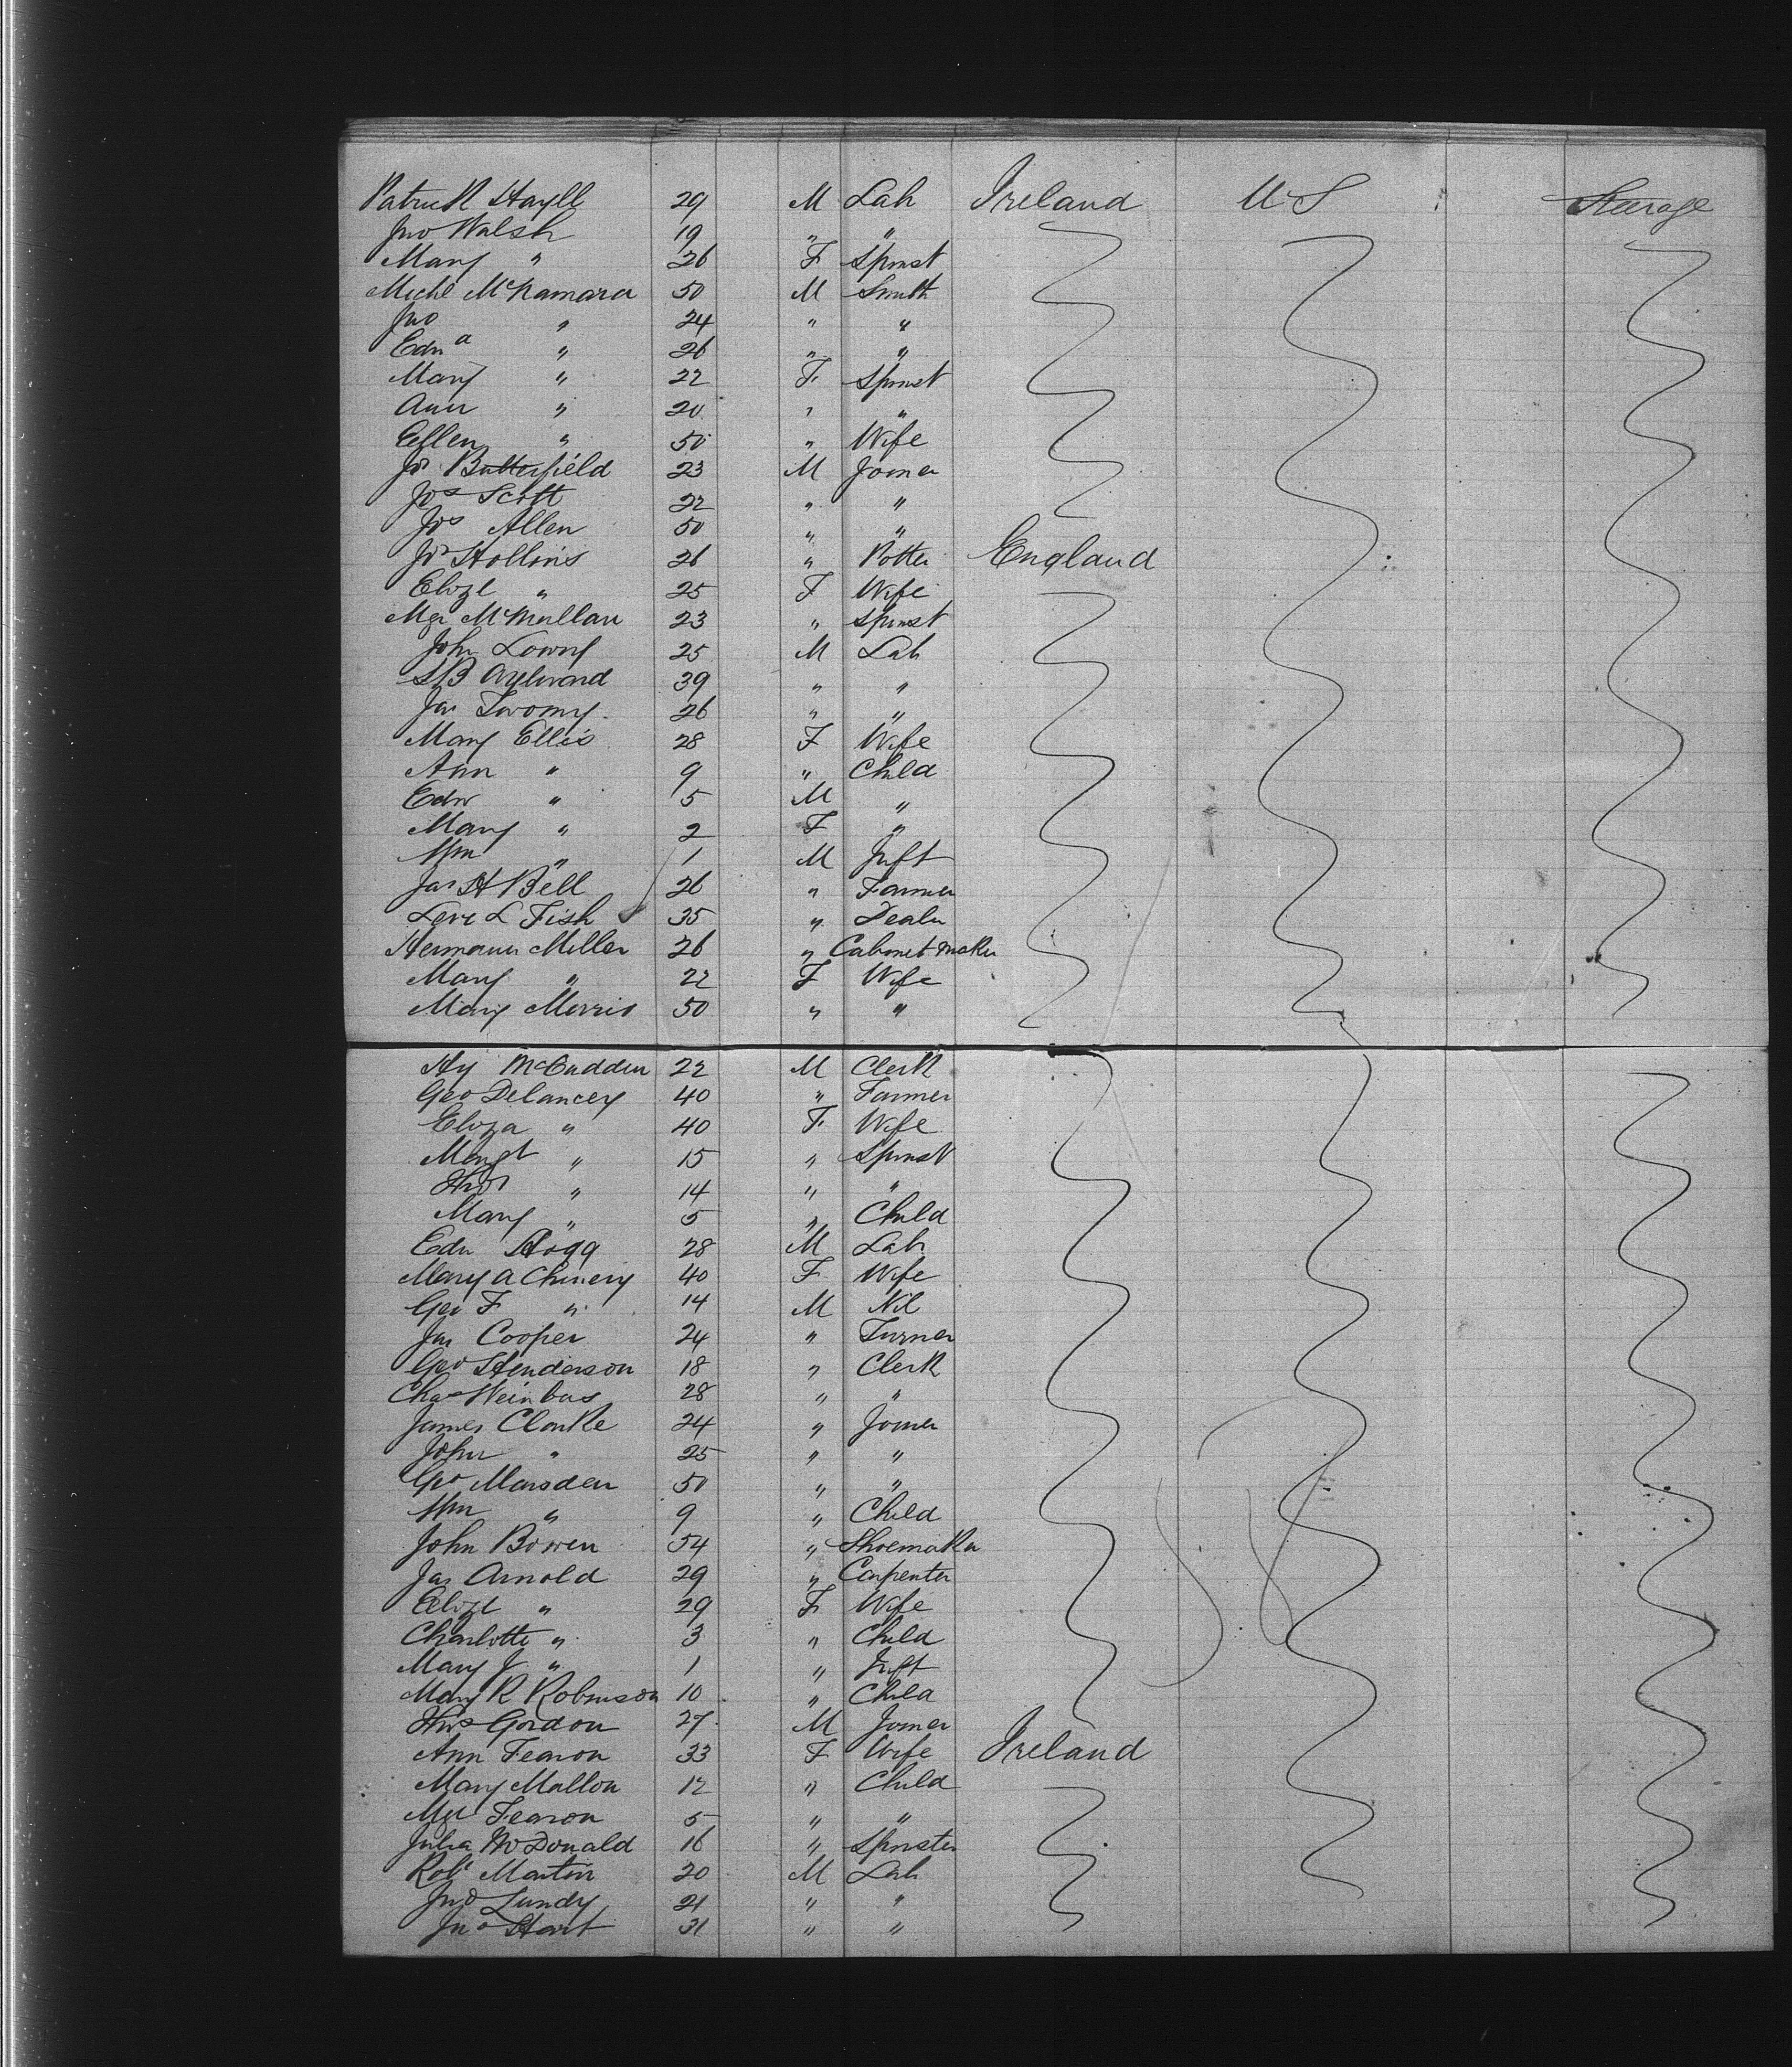 Patrick Hayll 29 M Lab Ireland U S Steerage
Jno Walsh 19 " "
Mary " 26 F Spinst
Michl McNamara 50 M Smith
Jno " 24 " "
Edn a " 26 " "
Mary " 22 F Spinst
Ann " 20 " "
Ellen " 50 " Wife
Js Butterfield 23 M Joiner
Jos Scott 22 " "
Jos Allen 50 " "
Js Hollins 26 " Potter England
Elizt " 25 F Wife
Mgt McMullan 23 " Spinst
John Lowry 25 M Lab
S B Aylward 39 " "
Jas Twomy 26 " "
Mary Ellis 28 F Wife
Ann " 9 " Child
Edw " 5 M "
Mary " 2 F "
Wm " 1 M Inft
Jas H Bell 26 " Farmer
Levi L Fish 35 " Dealer
Hermann Miller 26 " Cabinet maker
Mary " 22 F Wife
Mary Morris 50 " "
Hy McCadden 22 M Clerk
Geo Delancey 40 " Farmer
Eliza " 40 F Wife
Margt " 15 " Spinst
Thos " 14 " "
Mary " 5 " Child
Edw Hogg 28 M Lab
Mary A Chinery 40 F Wife
Geo F " 14 M Nil
Jas Cooper 24 " Turner
Geo Henderson 18 " Clerk
Chas Weinbus 28 " "
James Clarke 24 " Joiner
John " 25 " "
Geo Marsden 50 " "
Wm " 9 " Child
John Bowen 54 " Shoemaker
Jas Arnold 29 " Carpenter
Elizt " 29 F Wife
Charlotte " 3 " Child
Mary J " 1 " Inft
Mary R Robinson 10 " Child
Thos Gordon 27 M Joiner
Ann Fearon 33 F Wife Ireland
Mary Mallon 12 " Child
Mgt Fearon 5 " "
Julia McDonald 16 " Spinster
Robt Martin 20 M Lab
Jno Lundy 21 " "
Jno Hart 31 " "